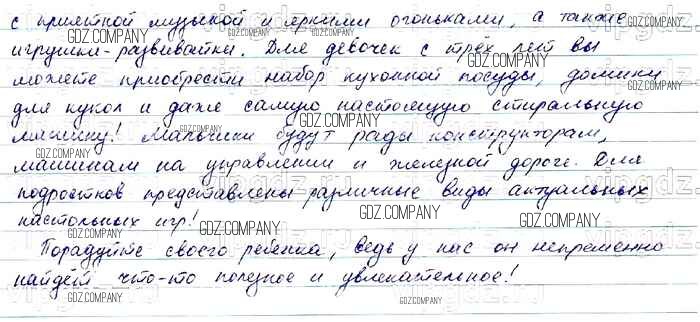 с приятной музыкой и яркими огоньками, а также
игрушки-развивайки. Для девочек с трёх лет вы
можете приобрести набор кухонной посуды, домики
для кукол и даже самую настоящую стиральную
машину! Мальчики будут рады конструкторам,
машинкам на управлении и железной дороге. Для
подростков представлены различные виды актуальных
настольных игр!
Порадуйте своего ребёнка, ведь у нас он непременно
найдёт что-то полезное и увлекательное!
GDZ.COMPANY
GDZ.COMPANY
GDZ.COMPANY
GDZ.COMPANY
GDZ.COMPANY
GDZ.COMPANY
GDZ.COMPANY
GDZ.COMPANY
GDZ.COMPANY
GDZ.COMPANY
GDZ.COMPANY
GDZ.COMPANY
GDZ.COMPANY